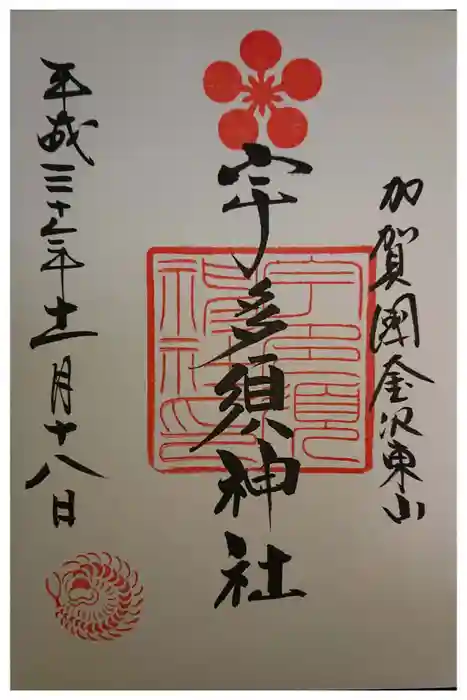 加賀國金沢東山
宇多須神社
平成三十年十一月十八日
宇多須
神社印